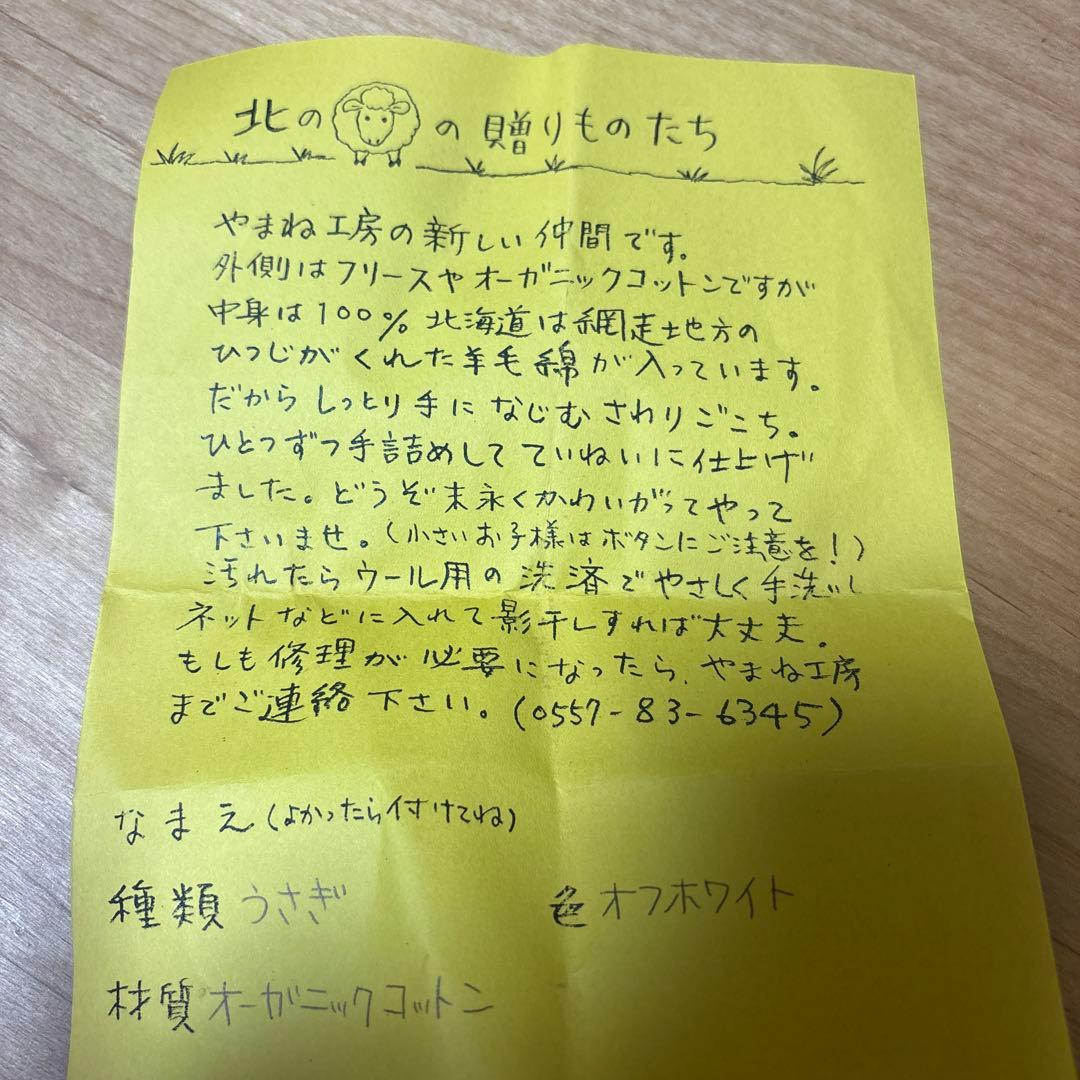 北の の贈りものたち
やまね工房の新しい仲間です。
外側はフリースやオーガニックコットンですが
中身は100%北海道は網走地方の
ひつじがくれた羊毛綿が入っています。
だからしっとり手になじむさわりごこち。
ひとつずつ手詰めしてていねいに仕上げ
ました。どうぞ末永くかわいがってやって
下さいませ。(小さいお子様はボタンにご注意を!)
汚れたらウール用の洗済でやさしく手洗いし
ネットなどに入れて影干しすれば大丈夫。
もしも修理が必要になったら、やまね工房
までご連絡下さい。(0557-83-6345)
なまえ(よかったら付けてね)
種類 うさぎ 色 オフホワイト
材質 オーガニックコットン